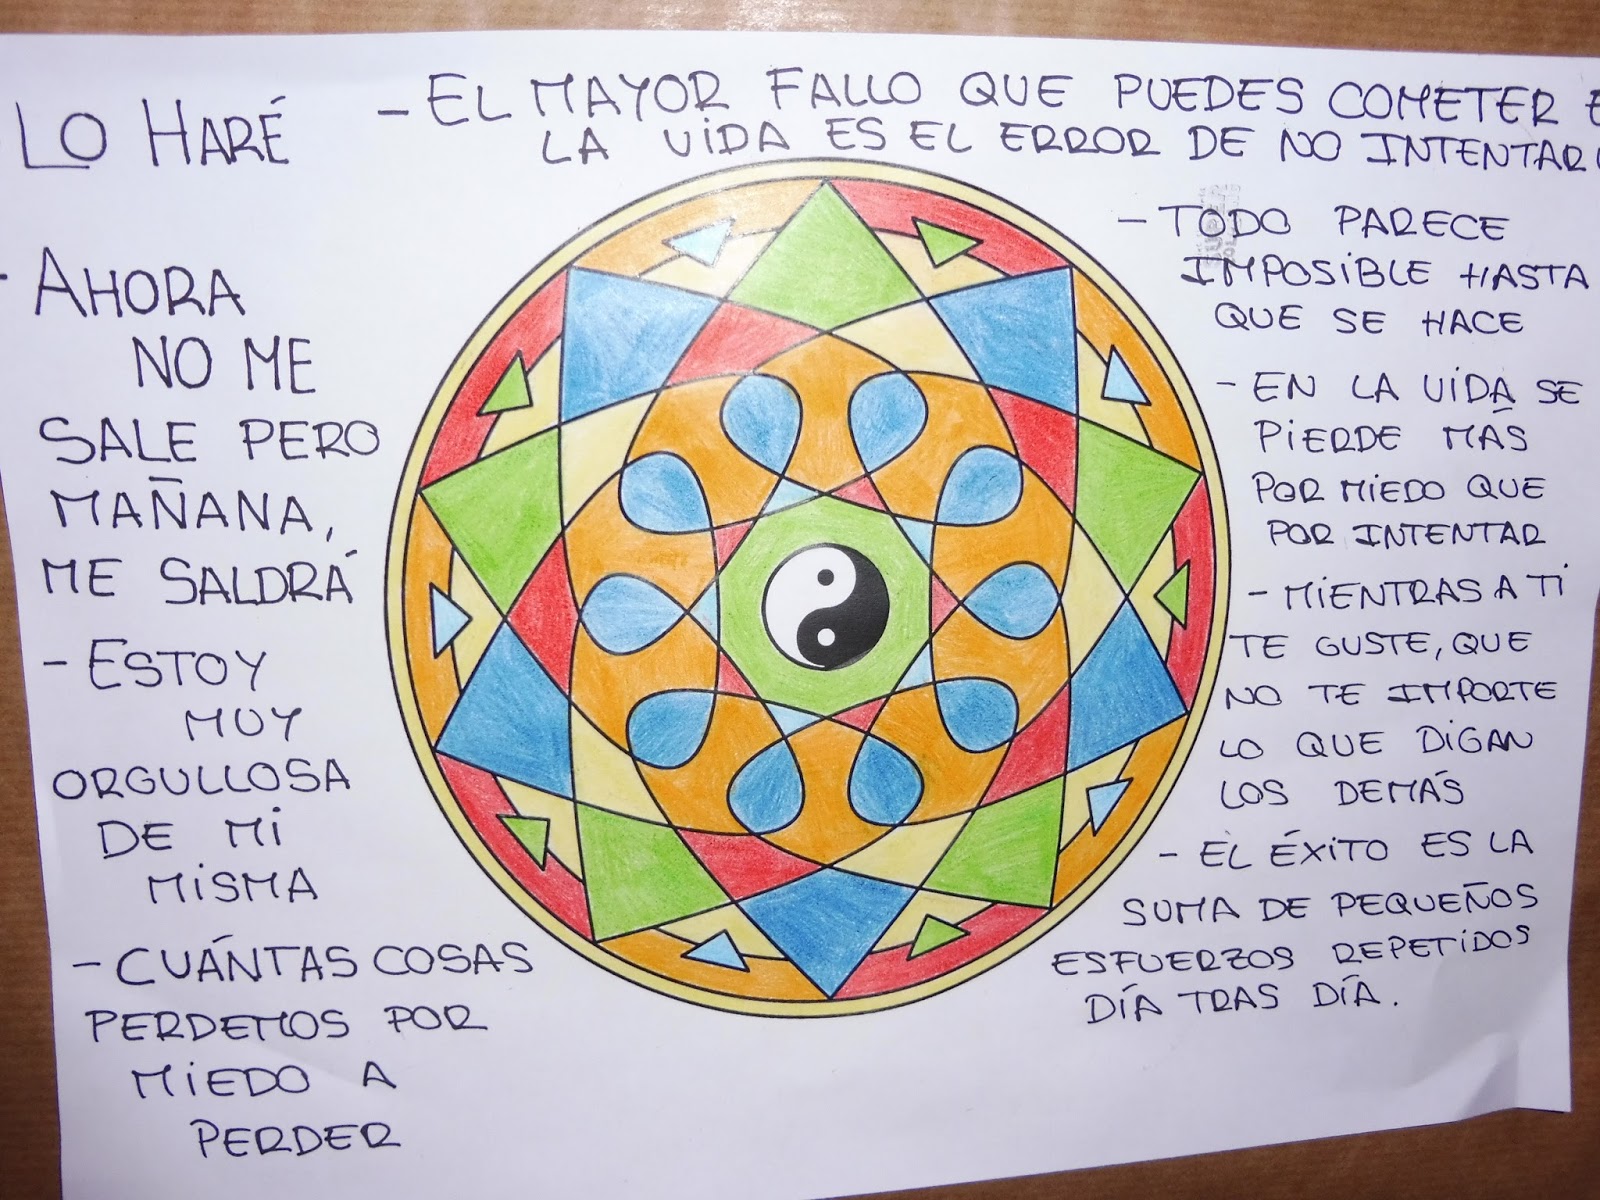 LO HARÉ
- AHORA
NO ME
SALE PERO
MAÑANA,
ME SALDRÁ
- ESTOY
MUY
ORGULLOSA
DE Mi
MiSMA
- CUÁNTAS COSAS
PERDEMOS POR
MiEDO A
PERDER
- EL MAYOR FALLO QUE PUEDES COMETER
LA ViDA ES EL ERROR DE NO INTENTAR
- TODO PARECE
IMPOSiBLE HASTA
QUE SE HACE
- EN LA ViDA SE
PiERDE MÁS
POR MiEDO QUE
POR INTENTAR
- MiENTRAS A Ti
TE GUSTE, QUE
NO TE IMPORTE
LO QUE DiGAN
LOS DEMÁS
- EL ÉXiTO ES LA
SUMA DE PEQUEÑOS
ESFUERZOS REPETiDOS
DÍA TRAS DÍA.